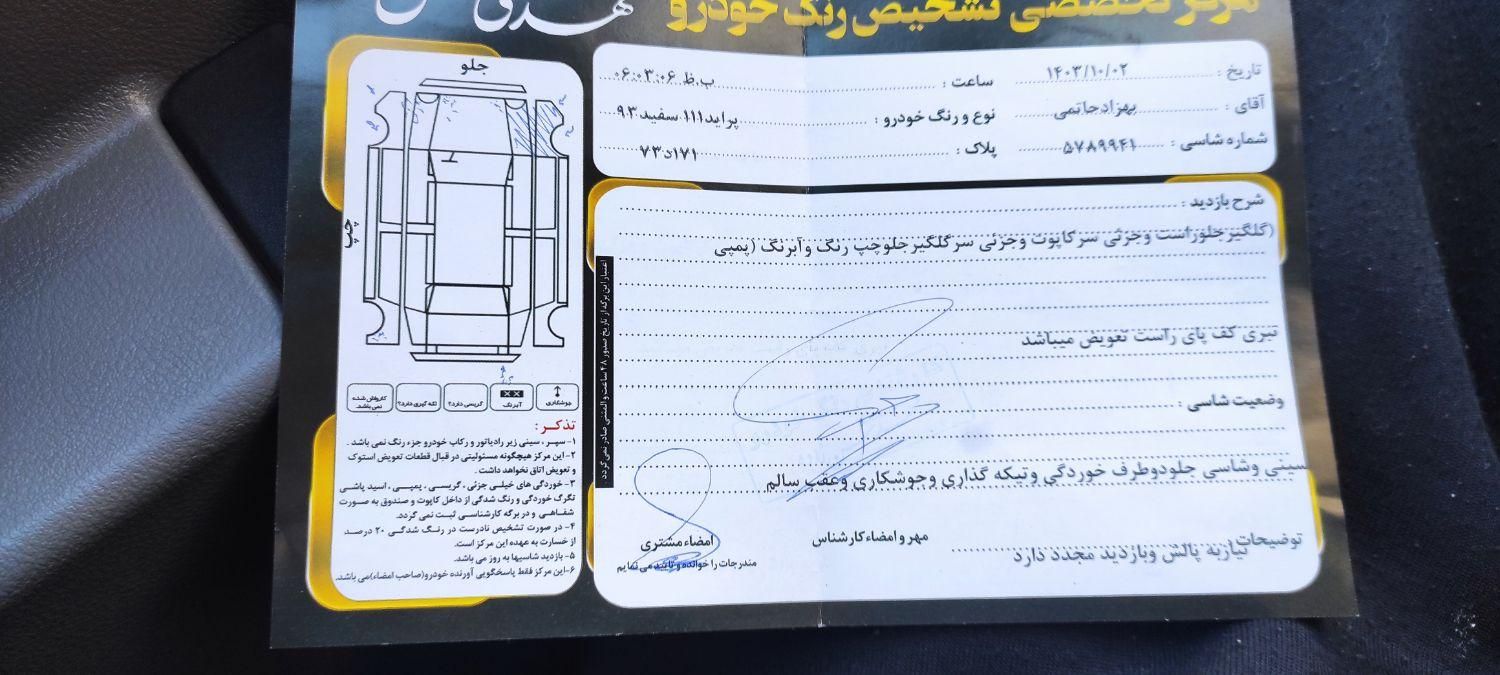 مرکز تخصصی تشخیص رنگ خودرو
تاریخ : ۱۴۰۳/۱۰/۰۲
ساعت : ۰۶:۰۳:۰۶ ب.ظ
آقای : بهزادحاتمی
نوع و رنگ خودرو : پراید۱۱۱ سفید ۹۳
شماره شاسی : ۵۷۸۹۹۴۱
پلاک : ۱۷۱د۷۳
شرح بازدید :
(گلگیرجلوراست وجزئی سرکاپوت وجزئی سرگلگیرجلوچپ رنگ وآبرنگ (پمپی
تبری کف پای راست تعویض میباشد
وضعیت شاسی :
سینی وشاسی جلودوطرف خوردگی وتیکه گذاری وجوشکاری وعقب سالم
توضیحات
نیازبه پالش وبازدید مجدد دارد
مهر و امضاء کارشناس
امضاء مشتری
مندرجات را خوانده و تایید می نمایم
اعتبار این برگه از تاریخ صدور ۴۸ ساعت و المثنی صادر نمی گردد
جلو
چپ
جوشکاری
آبرنگ
گریسی دارد؟
لکه گیری دارد؟
کارواش شده نمی باشد.
تذکر :
۱- سپر ، سینی زیر رادیاتور و رکاب خودرو جزء رنگ نمی باشد .
۲- این مرکز هیچگونه مسئولیتی در قبال قطعات تعویض استوک
و تعویض اتاق نخواهد داشت .
۳- خوردگی های خیلی جزئی ، گریسی ، پمپی ، اسید پاشی
تگرگ خوردگی و رنگ شدگی از داخل کاپوت و صندوق به صورت
شفاهی و در برگه کارشناسی ثبت نمی گردد.
۴- در صورت تشخیص نادرست در رنگ شدگی ۲۰ درصد
از خسارت به عهده این مرکز است.
۵- بازدید شاسیها به روز می باشد.
۶-این مرکز فقط پاسخگویی آورنده خودرو(صاحب امضاء)می باشد.